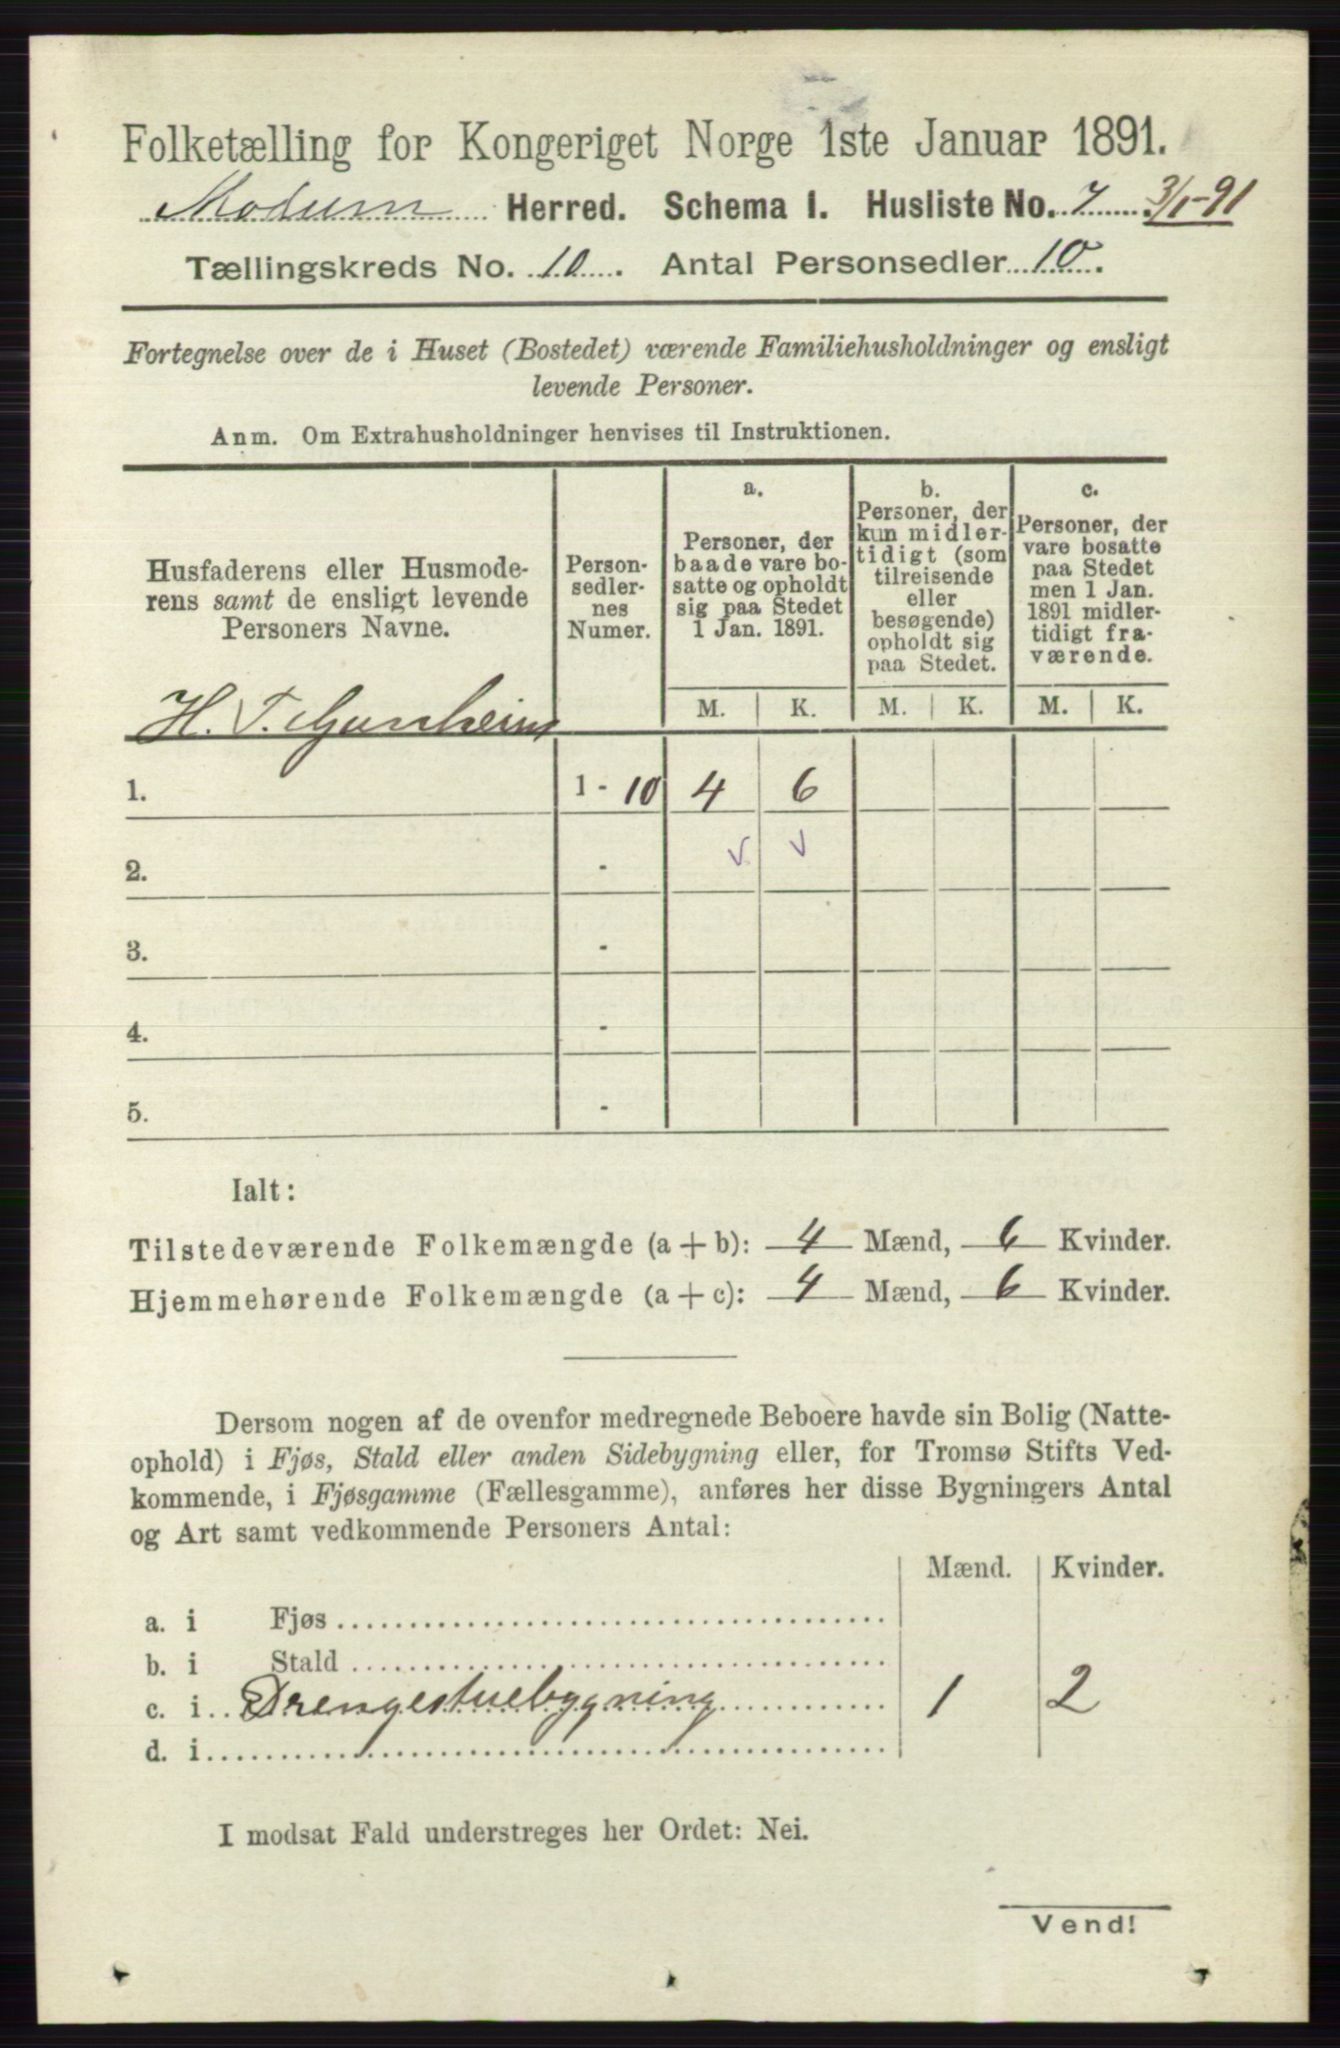 Folketælling for Kongeriget Norge 1ste Januar 1891.
Modum Herred. Schema I. Husliste No. 7 3/1-91
Tællingskreds No. 10. Antal Personsedler 10.
Fortegnelse over de i Huset (Bostedet) værende Familiehusholdninger og ensligt
levende Personer.
Anm. Om Extrahusholdninger henvises til Instruktionen.
Husfaderens eller Husmode-
rens samt de ensligt levende
Personers Navne.
Person-
sedler-
nes
Numer.
a.
Personer, der
baade vare bo-
satte og opholdt
sig paa Stedet
1 Jan. 1891.
b.
Personer, der
kun midler-
tidigt (som
tilreisende
eller
besøgende)
opholdt sig
paa Stedet.
c.
Personer, der
vare bosatte
paa Stedet
men 1 Jan.
1891 midler-
tidigt fra-
værende.
M. K. M. K. M. K.
H. T.
1. 1 - 10 4 6
2. - v v
3. -
4. -
5. -
Ialt:
Tilstedeværende Folkemængde (a + b): 4 Mænd, 6 Kvinder.
Hjemmehørende Folkemængde (a + c): 4 Mænd, 6 Kvinder.
Dersom nogen af de ovenfor medregnede Beboere havde sin Bolig (Natte-
ophold) i Fjøs, Stald eller anden Sidebygning eller, for Tromsø Stifts Ved-
kommende, i Fjøsgamme (Fællesgamme), anføres her disse Bygningers Antal
og Art samt vedkommende Personers Antal:
Mænd. Kvinder.
a. i Fjøs
b. i Stald
c. i Drengestuebygning 1 2
d. i
I modsat Fald understreges her Ordet: Nei.
Vend!